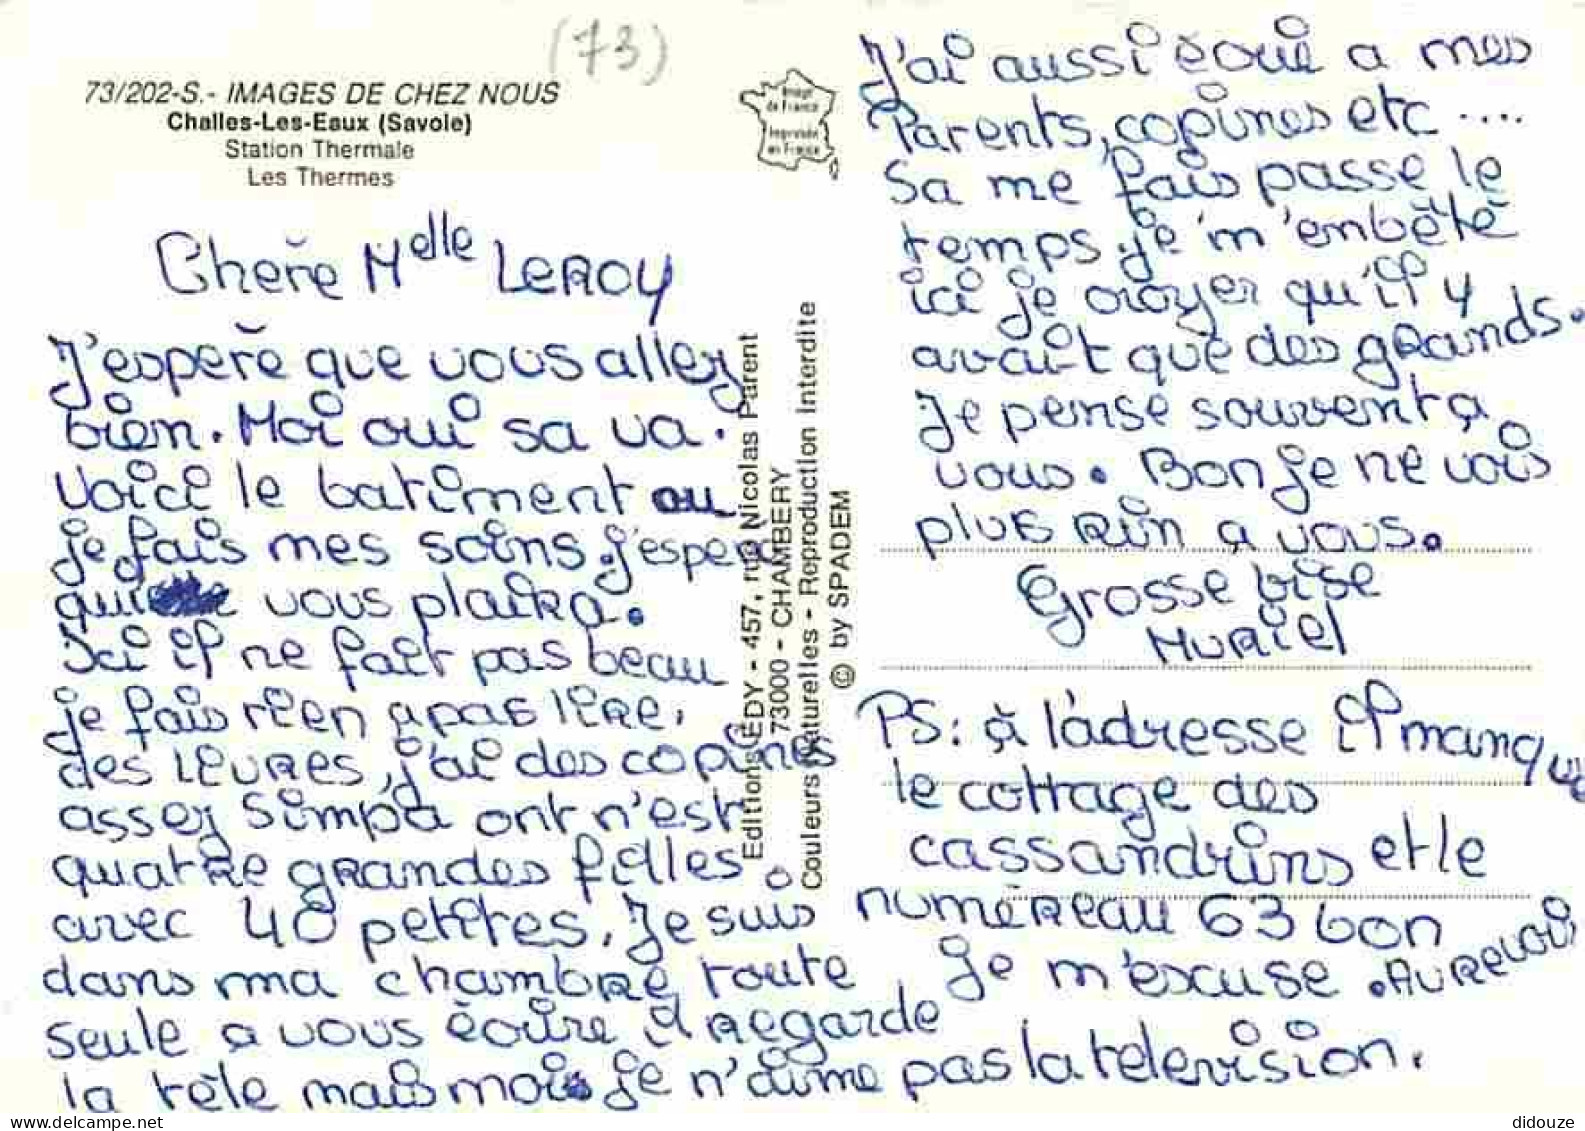 (73)
73/202-S.- IMAGES DE CHEZ NOUS
Challes-Les-Eaux (Savoie)
Station Thermale
Les Thermes
Image
de France
Imprimée
en France
Chère Melle LEROY
J'espere que vous allez
bien. Moi oui sa va.
Voici le batiment ou
je fais mes soins. j'espere
qui vous plaira.
Ici il ne fait pas beau
je fais rien apas lire,
des leures, j'ai des copines
assez Simpa ont n'est
quatre grandes filles
avec 40 petites. Je suis
dans ma chambre toute
seule a vous écrire il regarde
la tele mais moi je n'aime pas la television.
Editions EDY - 457, rue Nicolas Parent
73000 - CHAMBERY
Couleurs Naturelles - Reproduction Interdite
© by SPADEM
J'ai aussi écrie a mes
Parents, copines etc ....
Sa me fais passe le
temps je m'enbêté
ici je croyer qu'il y
avait que des grands.
Je pense souvent a
vous. Bon je ne vois
plus rin a vous.
Grosse bise
Muriel
PS: à l'adresse il manque
le cottage des
cassandrins et le
numéreau 63 bon
Je m'escuse. Aurevoir
didouze